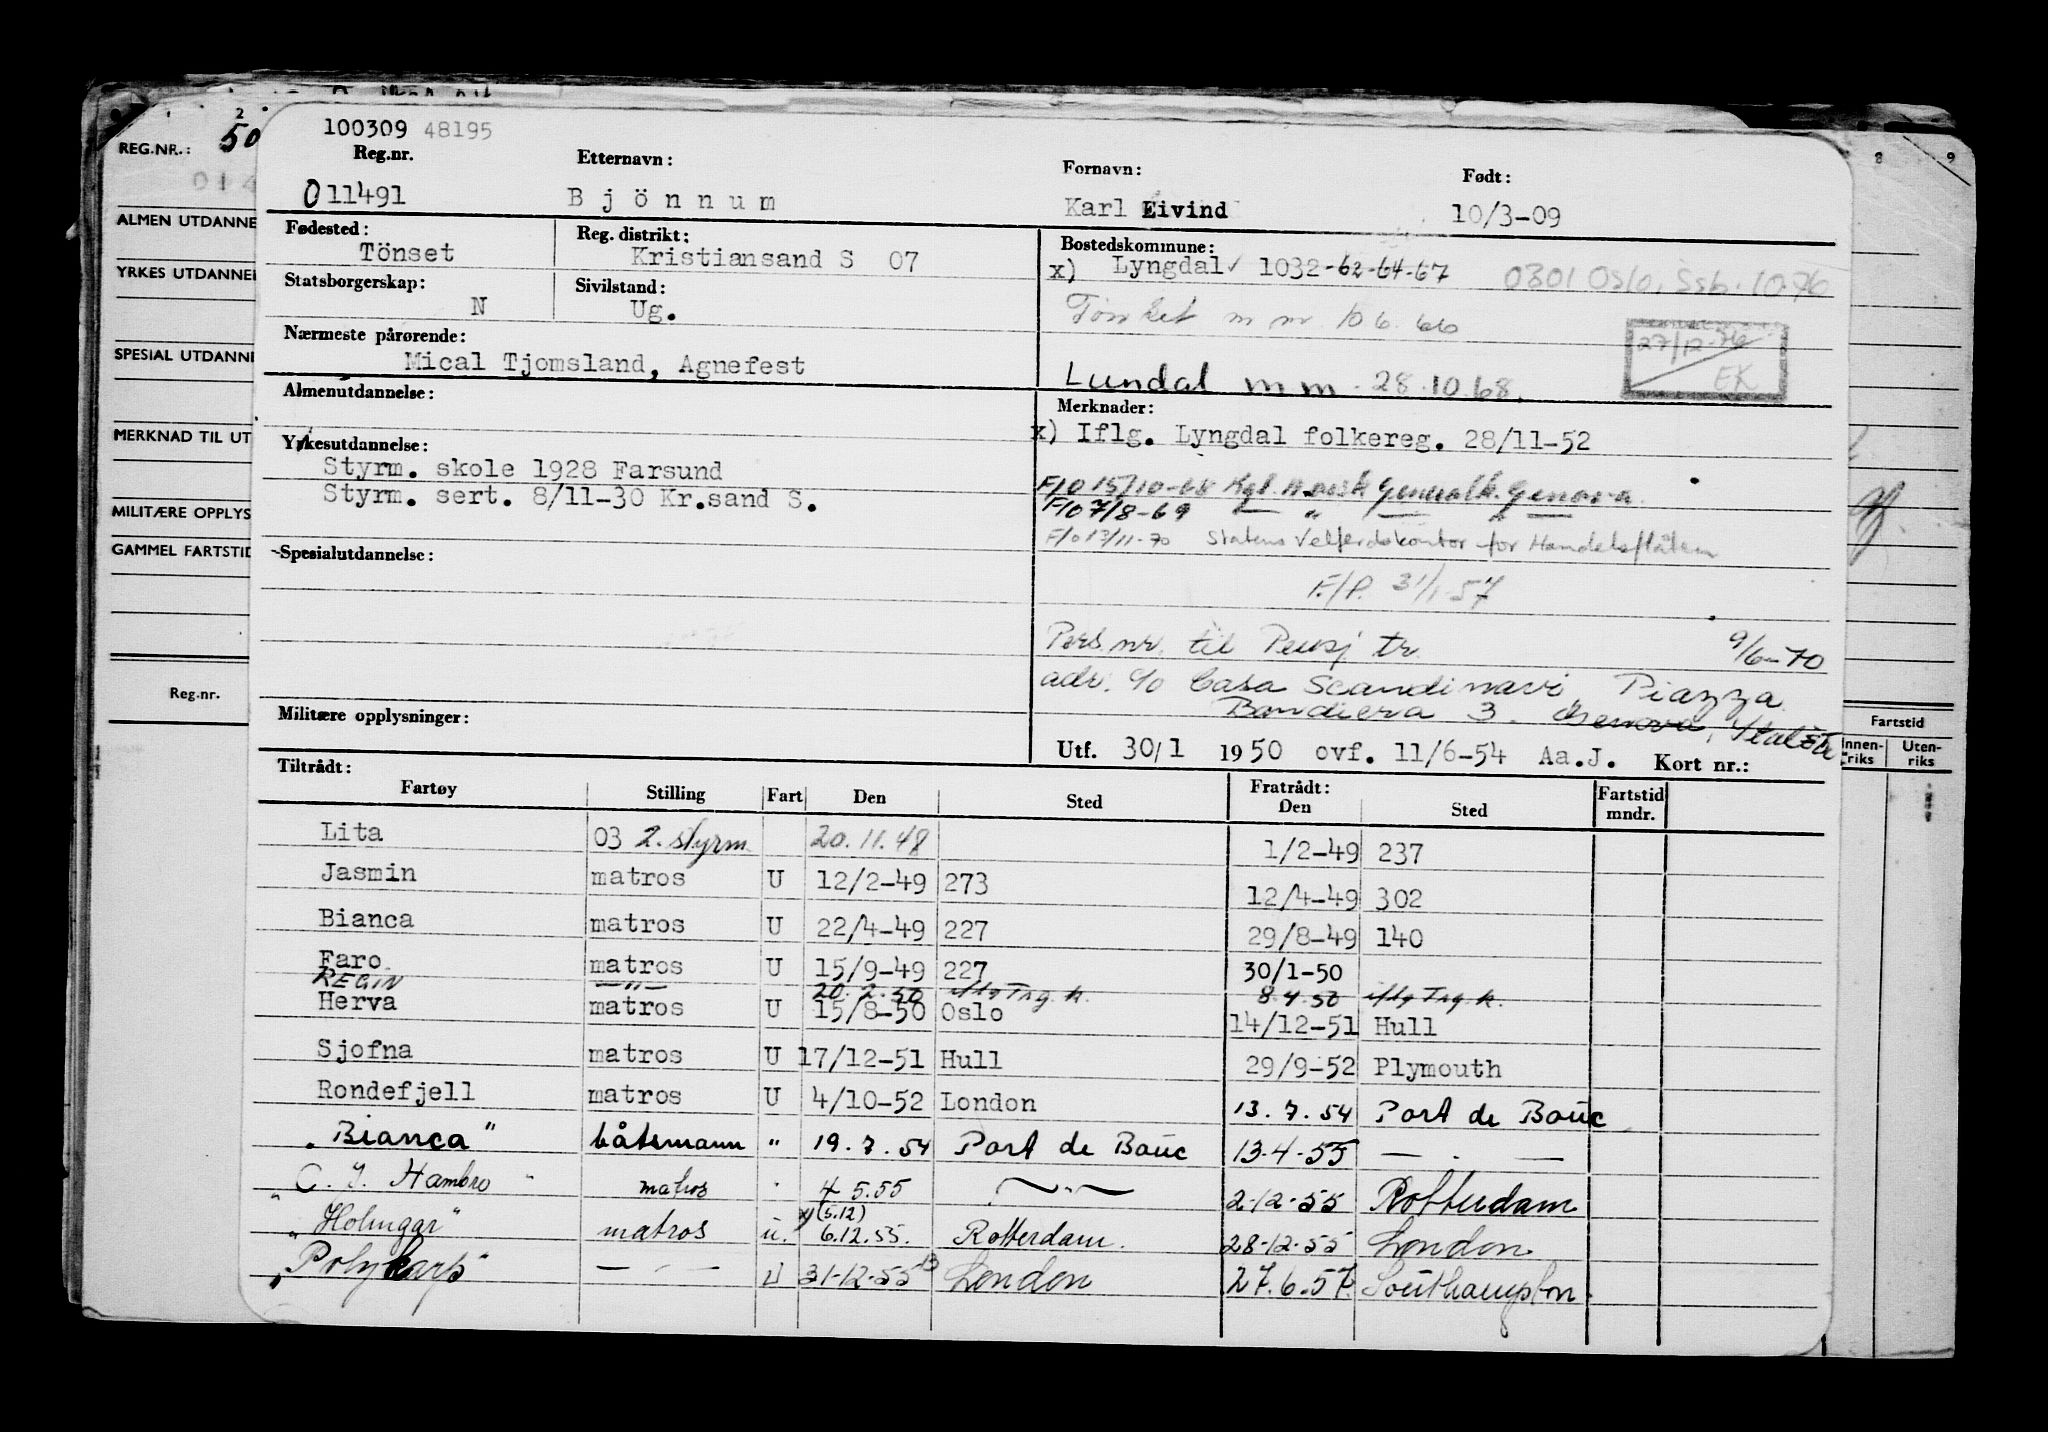 100309 48195
Reg.nr. Etternavn: Fornavn: Født:
011491 Bjönnum Karl Eivind 10/3-09
Fødested: Reg. distrikt: Bostedskommune:
Tönset Kristiansand S 07 x) Lyngdal ✓ 1032-62-64-67 0301 Oslo, Ssb. 10.76
Statsborgerskap: Sivilstand:
N Ug. m nr. 10 6. 66
Nærmeste pårørende: 27/12-76
Mical Tjomsland, Agnefest EK
Lundal m m. 28.10.68.
Almenutdannelse: Merknader:
x) Iflg. Lyngdal folkereg. 28/11-52
Yrkesutdannelse:
Styrm. skole 1928 Farsund
Styrm. sert. 8/11-30 Kr.sand S.
F/O 15/10-68 Kgl. Norsk Generalk. Genova.
F/O 7/8-69 — " — " —
F/O 13/11-70 Statens Velferdskontor for Handelsflåten
Spesialutdannelse:
F/P. 31/1-57
Pers.nr. til Pensj tr. 9/6-70
adr. c/o Casa Scandinavi, Piazza
Bandiera 3. Genova, Italia
Militære opplysninger:
Utf. 30/1 1950 ovf. 11/6-54 Aa.J. Kort nr.:
Tiltrådt: Fratrådt:
Fartøy Stilling Fart Den Sted Den Sted Fartstid mndr.
Lita 03 2. styrm. 20.11.48 1/2-49 237
Jasmin matros U 12/2-49 273 12/4-49 302
Bianca matros U 22/4-49 227 29/8-49 140
Faro matros U 15/9-49 227 30/1-50
REGIN —"— 20.2.50 iflg Trg.k. 8.4.50 iflg Trg.k.
Herva matros U 15/8-50 Oslo 14/12-51 Hull
Sjofna matros U 17/12-51 Hull 29/9-52 Plymouth
Rondefjell matros U 4/10-52 London 13.7.54 Port de Bouc
"Bianca" båtsmann " 19.7.54 Port de Bouc 13.4.55 — . —
"C. J. Hambro" matros " 4 5.55 —"— 2-12-55 Rotterdam
(5.12)
"Holmgar" matros u. 6.12.55. Rotterdam. 28-12-55 London
"Polykarp" — " — U 31-12-55 London 27.6.57. Southampton.
2 8 9
REG.NR.: 50
014
ALMEN UTDANNE
YRKES UTDANNEL
SPESIAL UTDANNE
MERKNAD TIL UT
MILITÆRE OPPLYS
GAMMEL FARTSTID
Reg.nr.
Fartstid
Innen-riks Uten-riks